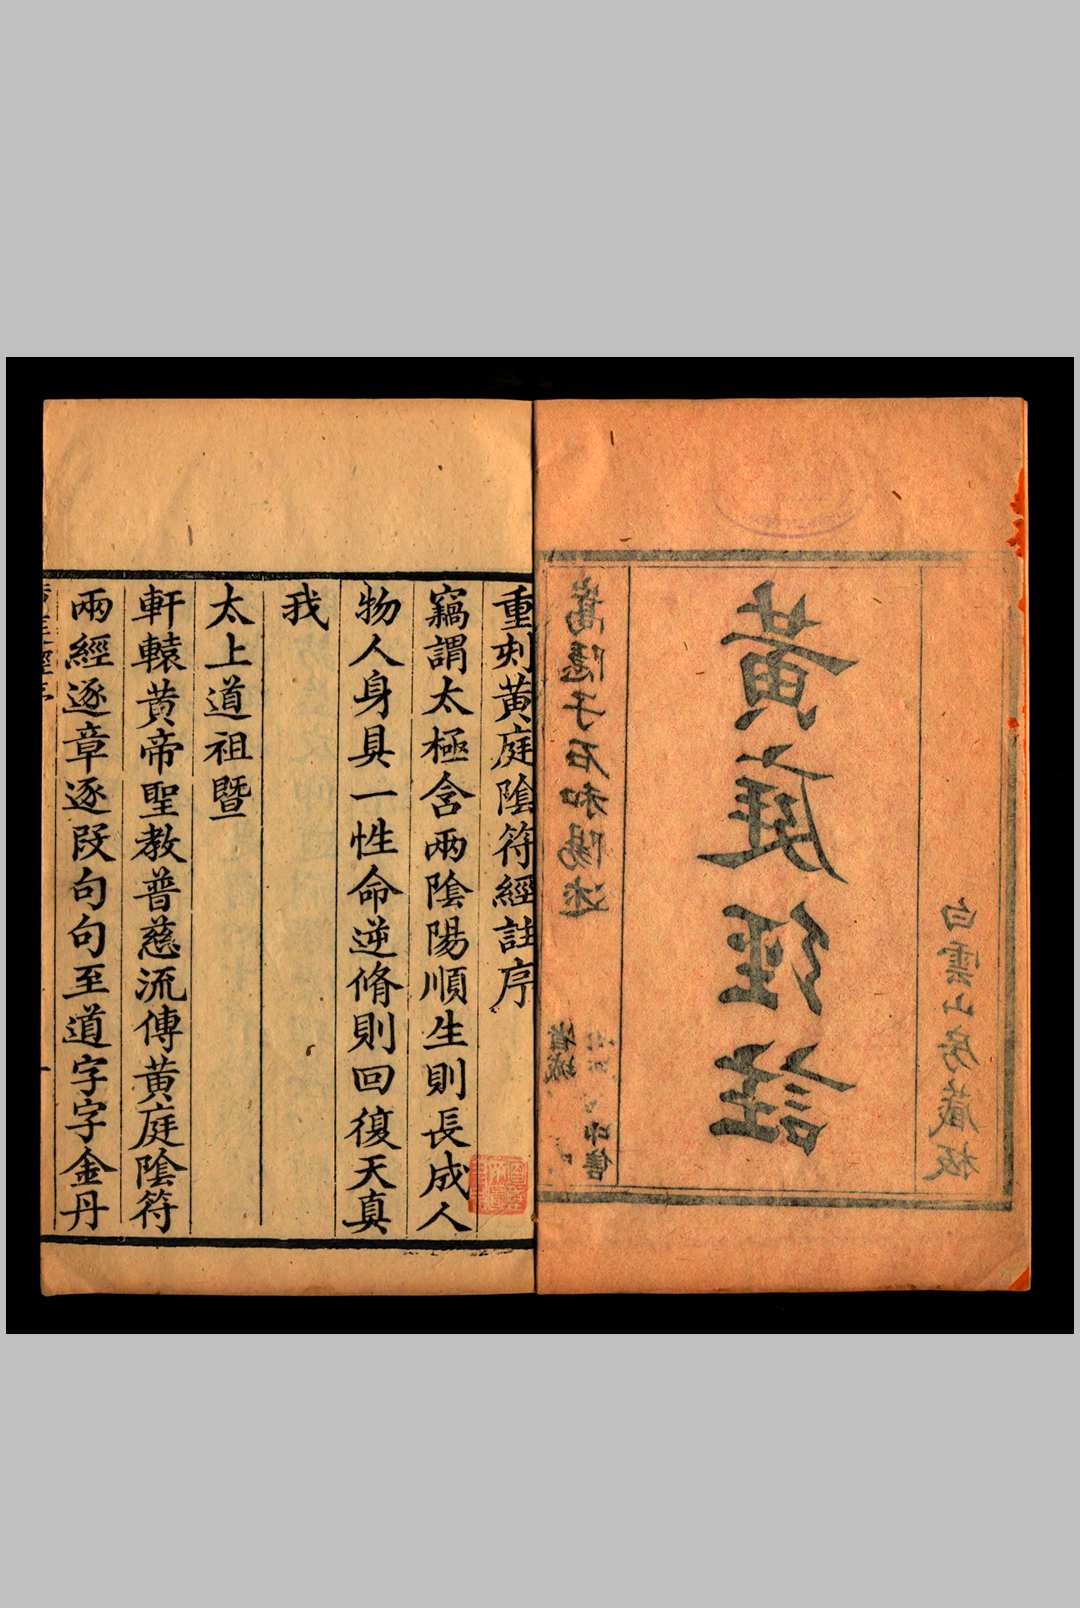 黃庭經註
嵩隱子石和陽述
白雲山房藏板
省城
印售
重刻黃庭陰符經註序
竊謂太極含兩陰陽順生則長成人
物人身具一性命逆脩則回復天真
我
太上道祖暨
軒轅黃帝聖教普慈流傳黃庭陰符
兩經逐章逐段句句至道字字金丹